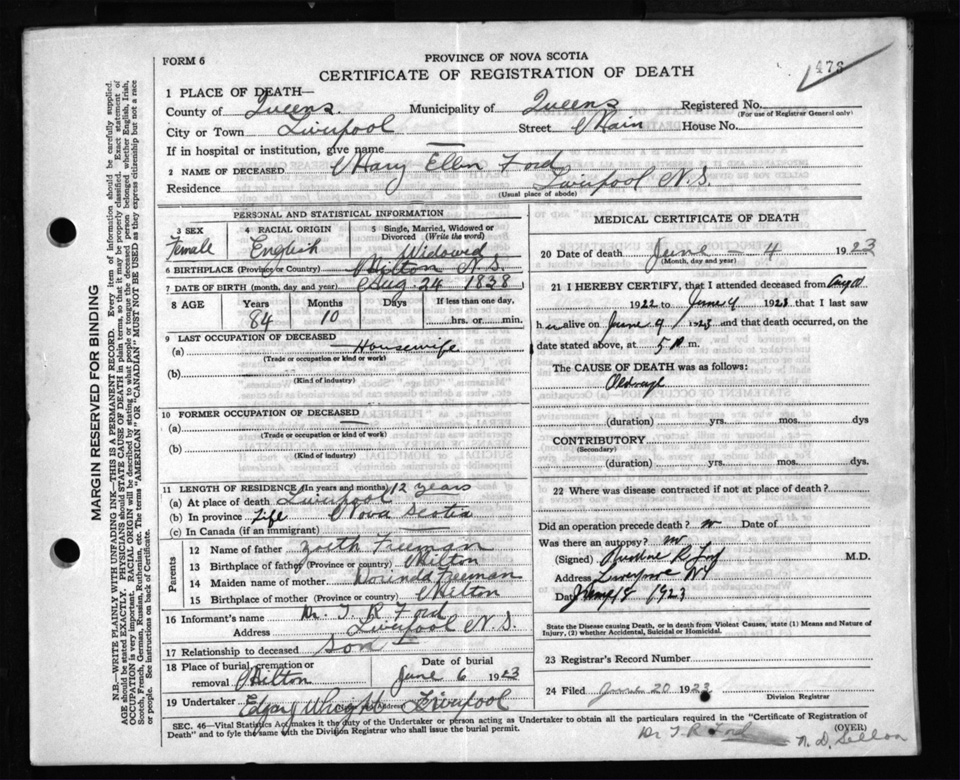 FORM 6
PROVINCE OF NOVA SCOTIA
CERTIFICATE OF REGISTRATION OF DEATH
473
1 PLACE OF DEATH—
County of Queens Municipality of Queens Registered No.
(For use of Registrar General only)
City or Town Liverpool Street Main House No.
If in hospital or institution, give name —
2 NAME OF DECEASED Mary Ellen Ford
Residence Liverpool N.S.
(Usual place of abode)
PERSONAL AND STATISTICAL INFORMATION
3 SEX 4 RACIAL ORIGIN 5 Single, Married, Widowed or Divorced (Write the word)
Female English Widowed
6 BIRTHPLACE (Province or Country) Milton N.S.
7 DATE OF BIRTH (month, day and year) Aug. 24 1838
8 AGE Years Months Days If less than one day,
84 10 hrs. or min.
9 LAST OCCUPATION OF DECEASED
(a) Housewife
(Trade or occupation or kind of work)
(b)
(Kind of industry)
10 FORMER OCCUPATION OF DECEASED
(a) —
(Trade or occupation or kind of work)
(b)
(Kind of industry)
11 LENGTH OF RESIDENCE (In years and months)
(a) At place of death Liverpool 12 years
(b) In province Life Nova Scotia
(c) In Canada (if an immigrant)
Parents
12 Name of father Zoeth Freeman
13 Birthplace of father (Province or country) Milton
14 Maiden name of mother Freeman
15 Birthplace of mother (Province or country) Milton
16 Informant's name Dr. T R Ford
Address Liverpool N.S.
17 Relationship to deceased Son
18 Place of burial, cremation or removal Milton Date of burial June 6 1923
19 Undertaker Edgar Liverpool
MEDICAL CERTIFICATE OF DEATH
20 Date of death June 4 1923
(Month, day and year)
21 I HEREBY CERTIFY, that I attended deceased from Aug
1922 to June 4 1923 that I last saw
her alive on June 1923 and that death occurred, on the
date stated above, at 5 m.
The CAUSE OF DEATH was as follows:
Old age
(duration) yrs. mos. dys
CONTRIBUTORY
(Secondary)
(duration) yrs. mos. dys.
22 Where was disease contracted if not at place of death?
Did an operation precede death? no Date of
Was there an autopsy? no
(Signed) M.D.
Address
Date June 18 1923
State the Disease causing Death, or in death from Violent Causes, state (1) Means and Nature of Injury, (2) whether Accidental, Suicidal or Homicidal.
23 Registrar's Record Number
24 Filed June 20 1923
Division Registrar
SEC. 46—Vital Statistics Act makes it the duty of the Undertaker or person acting as Undertaker to obtain all the particulars required in the "Certificate of Registration of
Death" and to fyle the same with the Division Registrar who shall issue the burial permit.
(OVER)
Dr T R Ford
MARGIN RESERVED FOR BINDING
N.B.—WRITE PLAINLY WITH UNFADING INK—THIS IS A PERMANENT RECORD. Every item of information should be carefully supplied.
AGE should be stated EXACTLY. PHYSICIANS should STATE CAUSE OF DEATH in plain terms, so that it may be properly classified. Exact Statement of
OCCUPATION is very important. RACIAL ORIGIN will be described by stating to what people or tongue the deceased person belonged whether English, Irish,
Scotch, French, German, Russian, Ruthenian, etc. The terms "AMERICAN" OR "CANADIAN" MUST NOT BE USED as they express citizenship but not a race
or people. See instructions on back of Certificate.